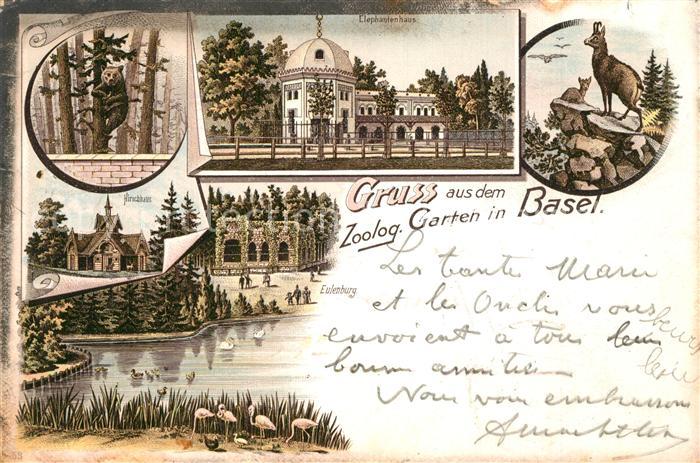 Elephantenhaus.
Hirschhaus
Gruss aus dem
Zoolog. Garten in Basel.
Eulenburg.
Les tantes Marie
et les Oncles vous
envoient à tous leurs
bonnes amitiés
Nous vous embrassons
53